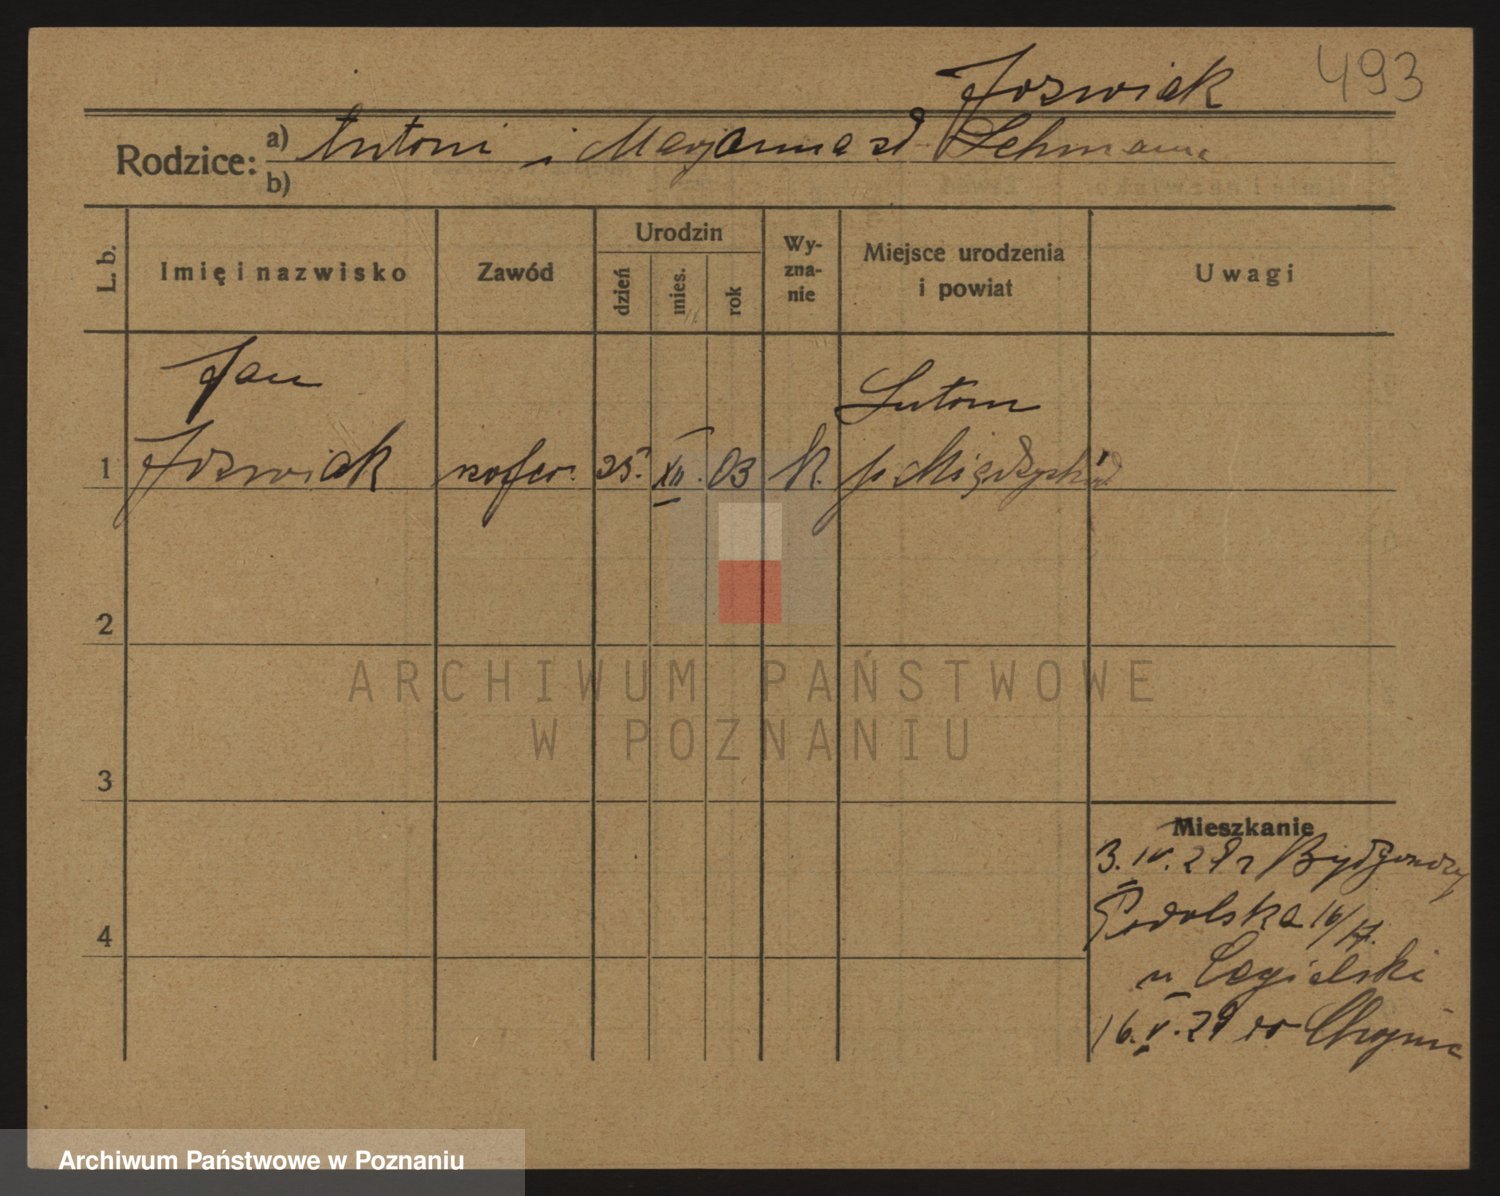 Jozwiak 493
Rodzice: a) Antoni i Maryanna zd Lehmann
b)
L. b. Imię i nazwisko Zawód Urodzin dzień mies. rok Wy-zna-nie Miejsce urodzenia i powiat Uwagi
Jan Lutom
1 Jozwiak szofer. 25. XII. 03 k. p. Międzychód
2
ARCHIWUM PAŃSTWOWE
W POZNANIU
3
Mieszkanie
3. IV. 29 z Bydgoszczy
4 Podolska 16/17.
u Cegielski
16. V. 29 do Chojnic
Archiwum Państwowe w Poznaniu